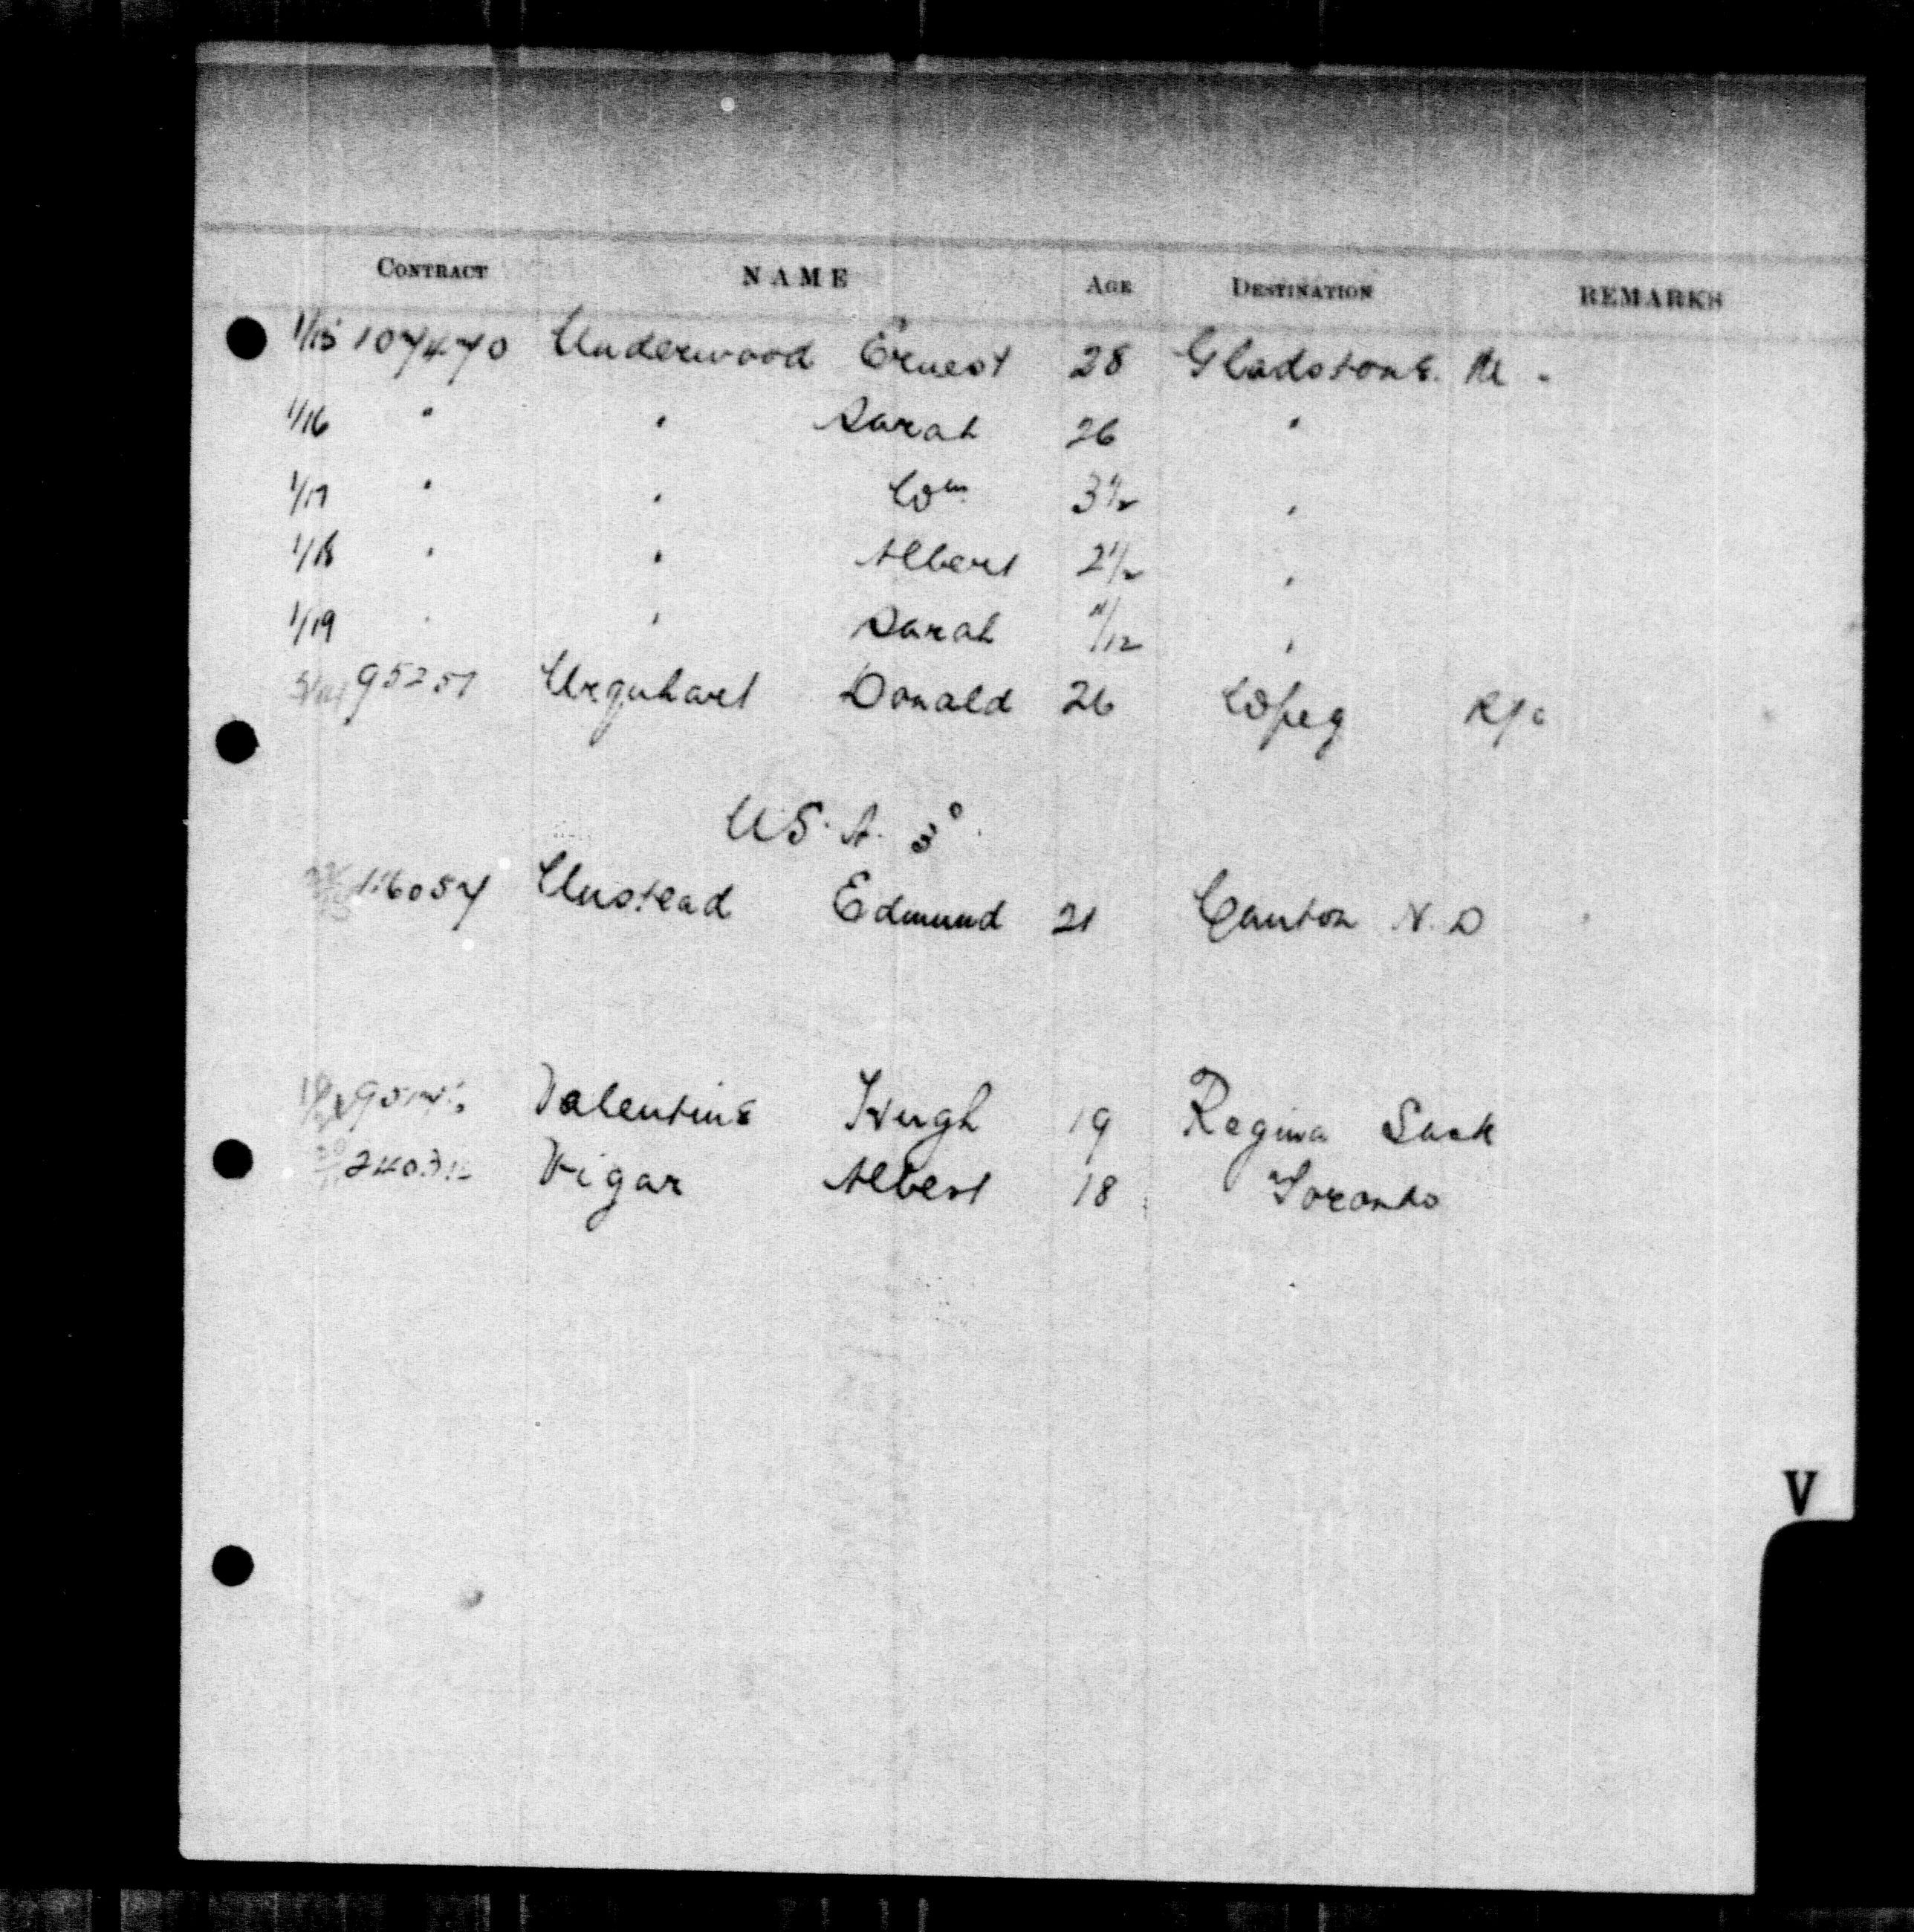 CONTRACT NAME AGE DESTINATION REMARKS
1/15 107470 Underwood Ernest 28 Gladstone. M.
1/16 " " Sarah 26 "
1/17 " " Wm 3 1/2 "
1/18 " " Albert 2 1/2 "
1/19 " " Sarah 11/12 "
95257 Urquhart Donald 26 Wpeg
U.S.A. 3°
116057 Unstead Edmund 21 Canton N.D
Valentine Hugh 19 Regina Sask
Vigar Albert 18 Toronto
V